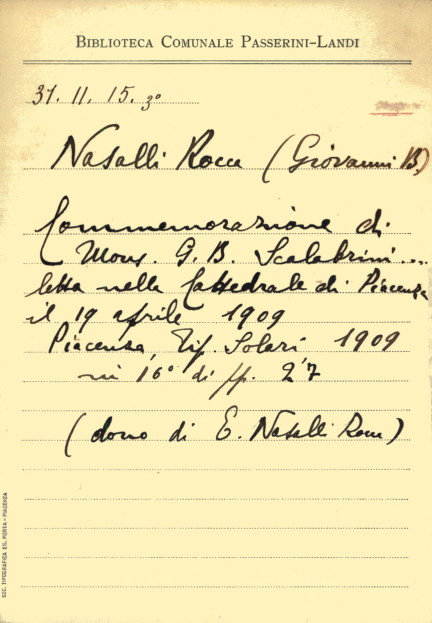 BIBLIOTECA COMUNALE PASSERINI-LANDI
31. 11. 15. 3°
Nasalli Rocca (Giovanni B.)
Commemorazione di
Mons. G. B. Scalabrini....
letta nella Cattedrale di Piacenza
il 19 aprile 1909
Piacenza, Tip. Solari, 1909
in 16° di pp. 27
(dono di E. Nasalli Rocca)
SOC. TIPOGRAFICA ED. PORTA - PIACENZA